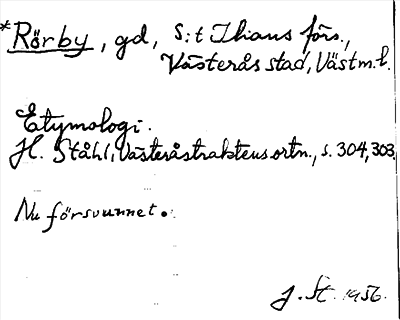 *Rörby, gd, S:t Ilians förs.,
Västerås stad, Västm.l.
Etymologi.
H. Ståhl, Västeråstraktens ortn., s. 304, 303.
Nu försvunnet.
J. St. 1956.